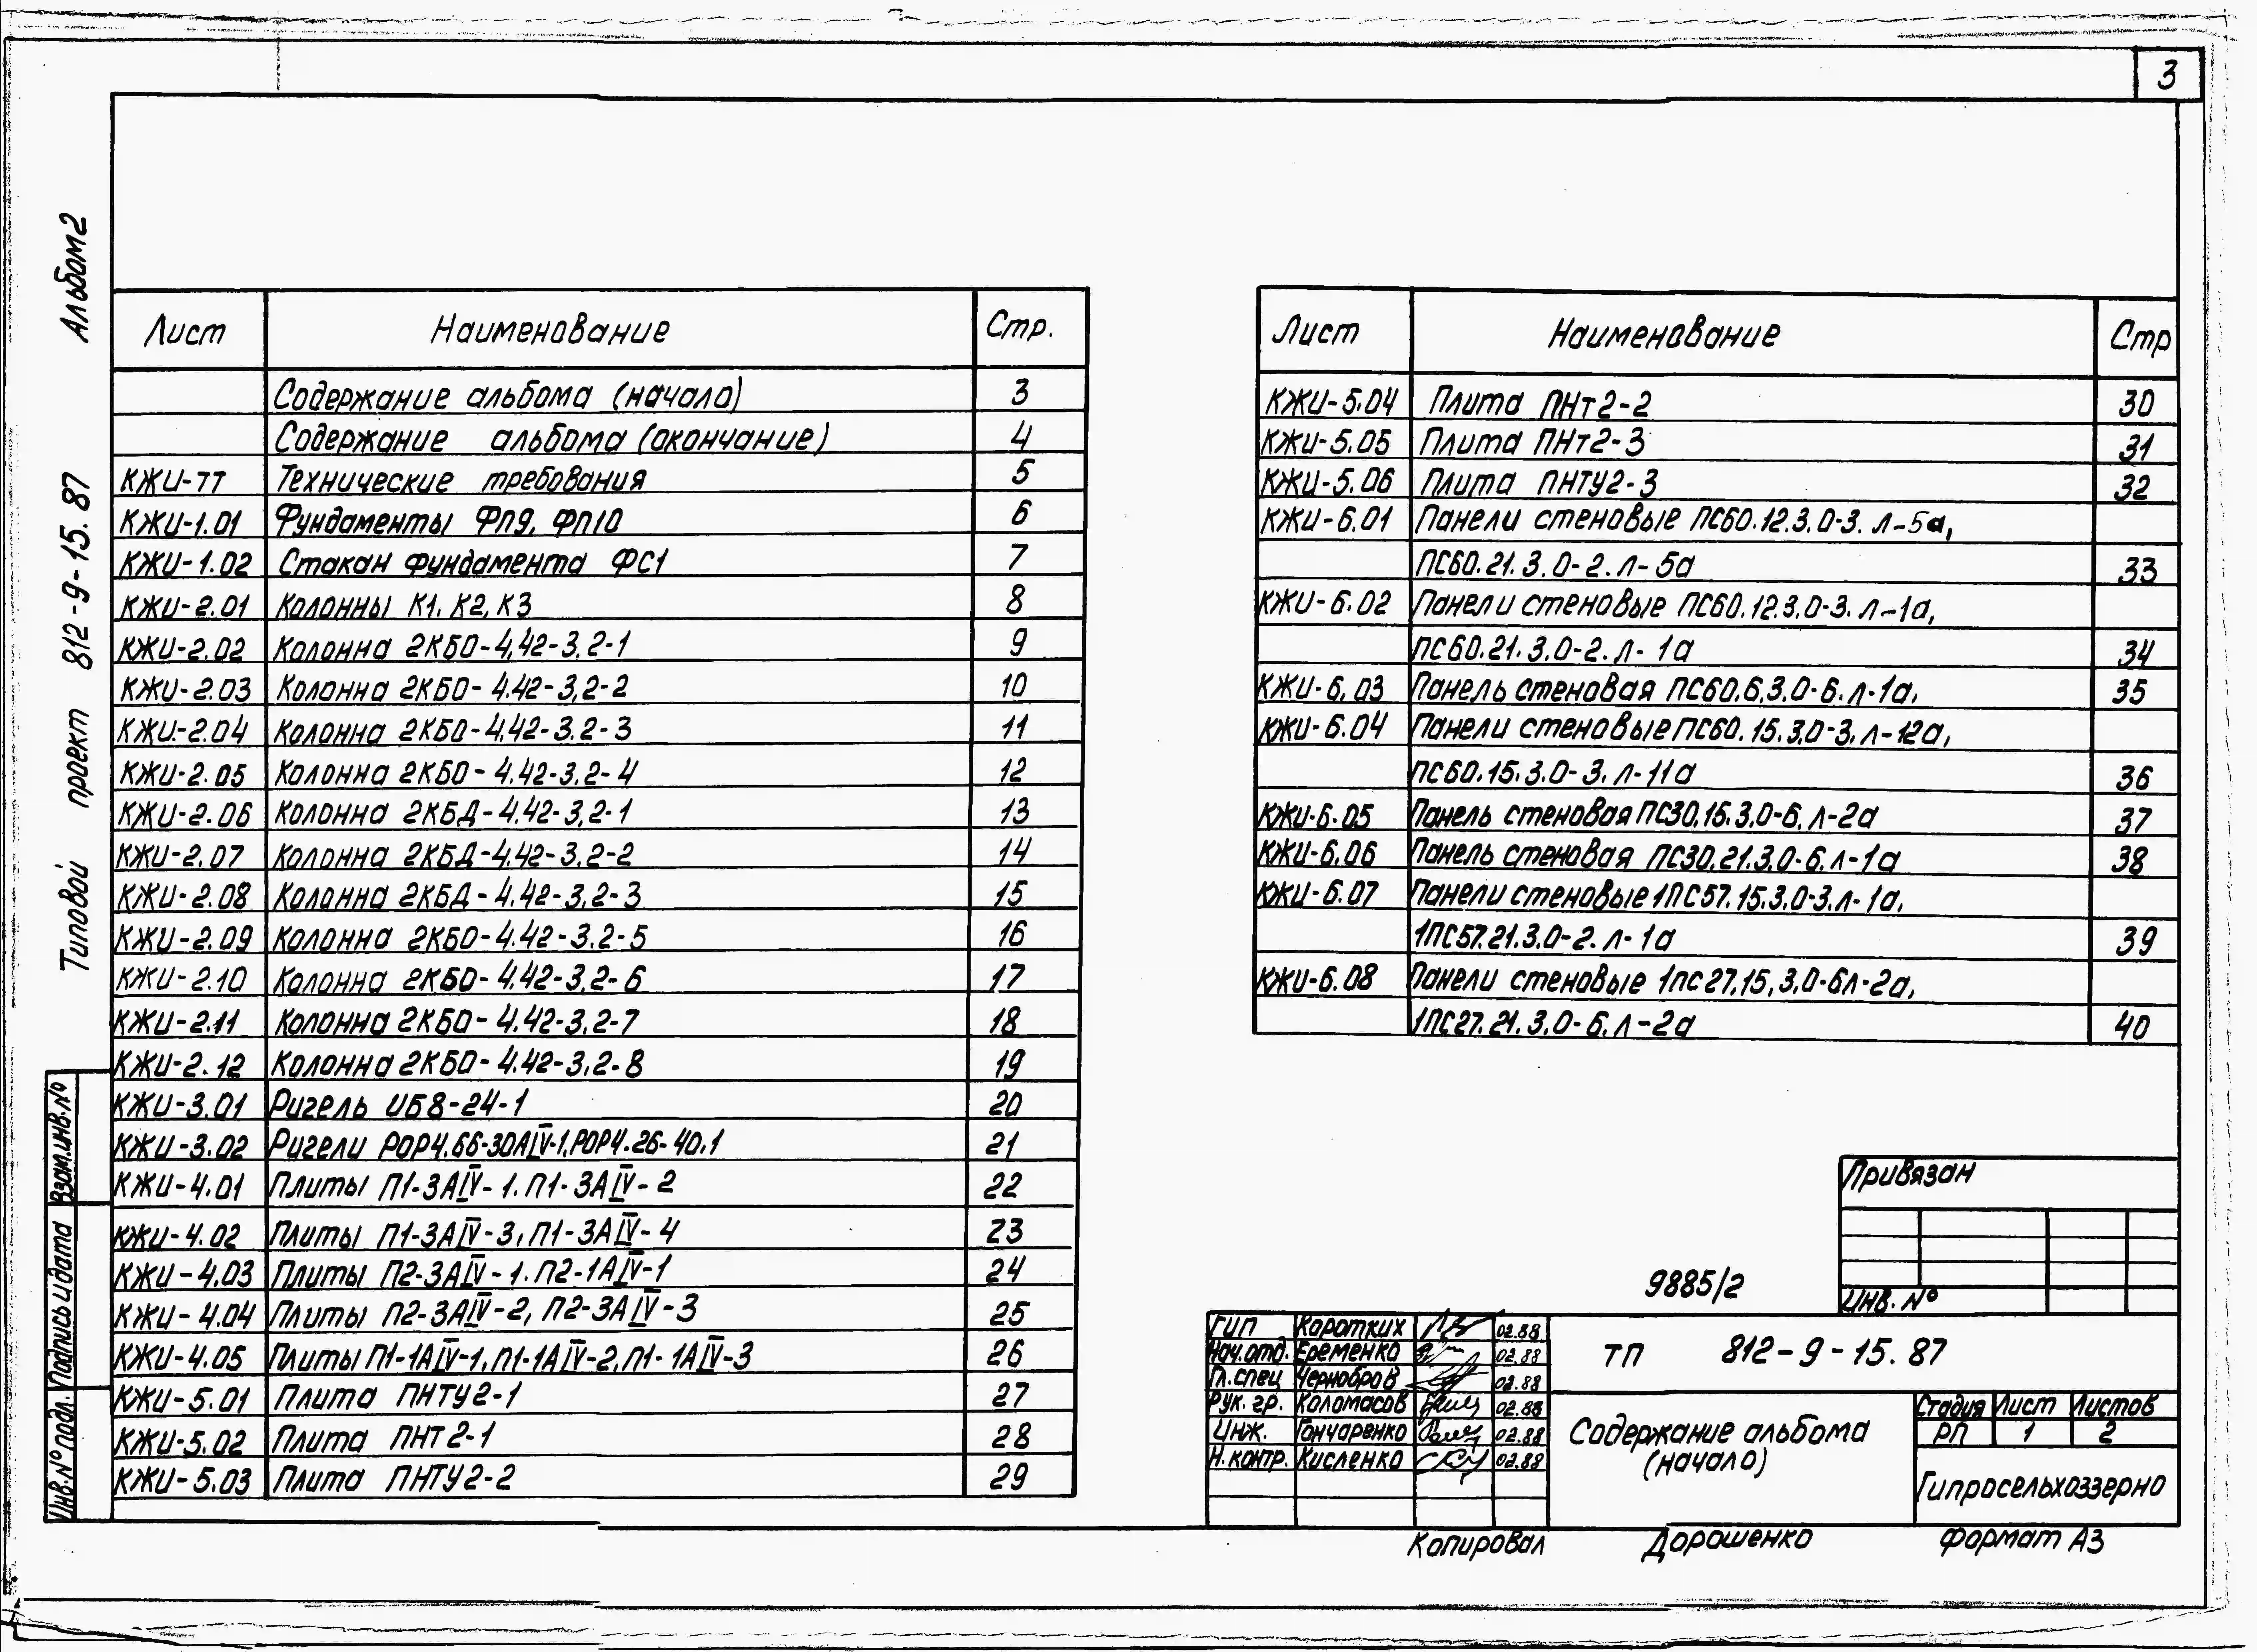 3
Альбом 2
Типовой проект 812-9-15.87
Лист Наименование Стр.
Содержание альбома (начало) 3
Содержание альбома (окончание) 4
КЖИ-ТТ Технические требования 5
КЖИ-1.01 Фундаменты ФП9, ФП10 6
КЖИ-1.02 Стакан фундамента ФС1 7
КЖИ-2.01 Колонны К1, К2, К3 8
КЖИ-2.02 Колонна 2КБО-4,42-3,2-1 9
КЖИ-2.03 Колонна 2КБО-4.42-3,2-2 10
КЖИ-2.04 Колонна 2КБО-4,42-3.2-3 11
КЖИ-2.05 Колонна 2КБО-4.42-3.2-4 12
КЖИ-2.06 Колонна 2КБД-4.42-3,2-1 13
КЖИ-2.07 Колонна 2КБД-4.42-3,2-2 14
КЖИ-2.08 Колонна 2КБД-4.42-3,2-3 15
КЖИ-2.09 Колонна 2КБО-4.42-3.2-5 16
КЖИ-2.10 Колонна 2КБО-4.42-3,2-6 17
КЖИ-2.11 Колонна 2КБО-4.42-3,2-7 18
КЖИ-2.12 Колонна 2КБО-4.42-3,2-8 19
КЖИ-3.01 Ригель ИБ8-24-1 20
КЖИ-3.02 Ригели РОР4.66-30АIV-1, РОР4.26-40.1 21
КЖИ-4.01 Плиты П1-3АIV-1. П1-3АIV-2 22
КЖИ-4.02 Плиты П1-3АIV-3, П1-3АIV-4 23
КЖИ-4.03 Плиты П2-3АIV-1. П2-1АIV-1 24
КЖИ-4.04 Плиты П2-3АIV-2, П2-3АIV-3 25
КЖИ-4.05 Плиты П1-1АIV-1, П1-1АIV-2, П1-1АIV-3 26
КЖИ-5.01 Плита ПНТУ2-1 27
КЖИ-5.02 Плита ПНТ2-1 28
КЖИ-5.03 Плита ПНТУ2-2 29
Лист Наименование Стр
КЖИ-5.04 Плита ПНт2-2 30
КЖИ-5.05 Плита ПНт2-3 31
КЖИ-5.06 Плита ПНТУ2-3 32
КЖИ-6.01 Панели стеновые ПС60.12.3.0-3.л-5а,
ПС60.21.3.0-2.л-5а 33
КЖИ-6.02 Панели стеновые ПС60.12.3.0-3.л-1а,
ПС60.21.3.0-2.л-1а 34
КЖИ-6.03 Панель стеновая ПС60.6.3.0-6.л-1а, 35
КЖИ-6.04 Панели стеновые ПС60.15.3.0-3.л-12а,
ПС60.15.3.0-3.л-11а 36
КЖИ-6.05 Панель стеновая ПС30.15.3.0-6.л-2а 37
КЖИ-6.06 Панель стеновая ПС30.21.3.0-6.л-1а 38
КЖИ-6.07 Панели стеновые 1ПС57.15.3.0-3.л-1а,
1ПС57.21.3.0-2.л-1а 39
КЖИ-6.08 Панели стеновые 1пс27.15.3.0-6л-2а,
1ПС27.21.3.0-6.л-2а 40
Взам.инв.№
Подпись и дата
Инв.№ подл.
Привязан
Инв. №
9885/2
ГИП Коротких 02.88
Нач.отд. Еременко 02.88
Гл.спец Чернобров 02.88
Рук. гр. Коломасов 02.88
Инж. Гончаренко 02.88
Н.контр. Кисленко 02.88
ТП 812-9-15.87
Содержание альбома
(начало)
Стадия Лист Листов
РП 1 2
Гипросельхоззерно
Копировал Дорошенко Формат А3